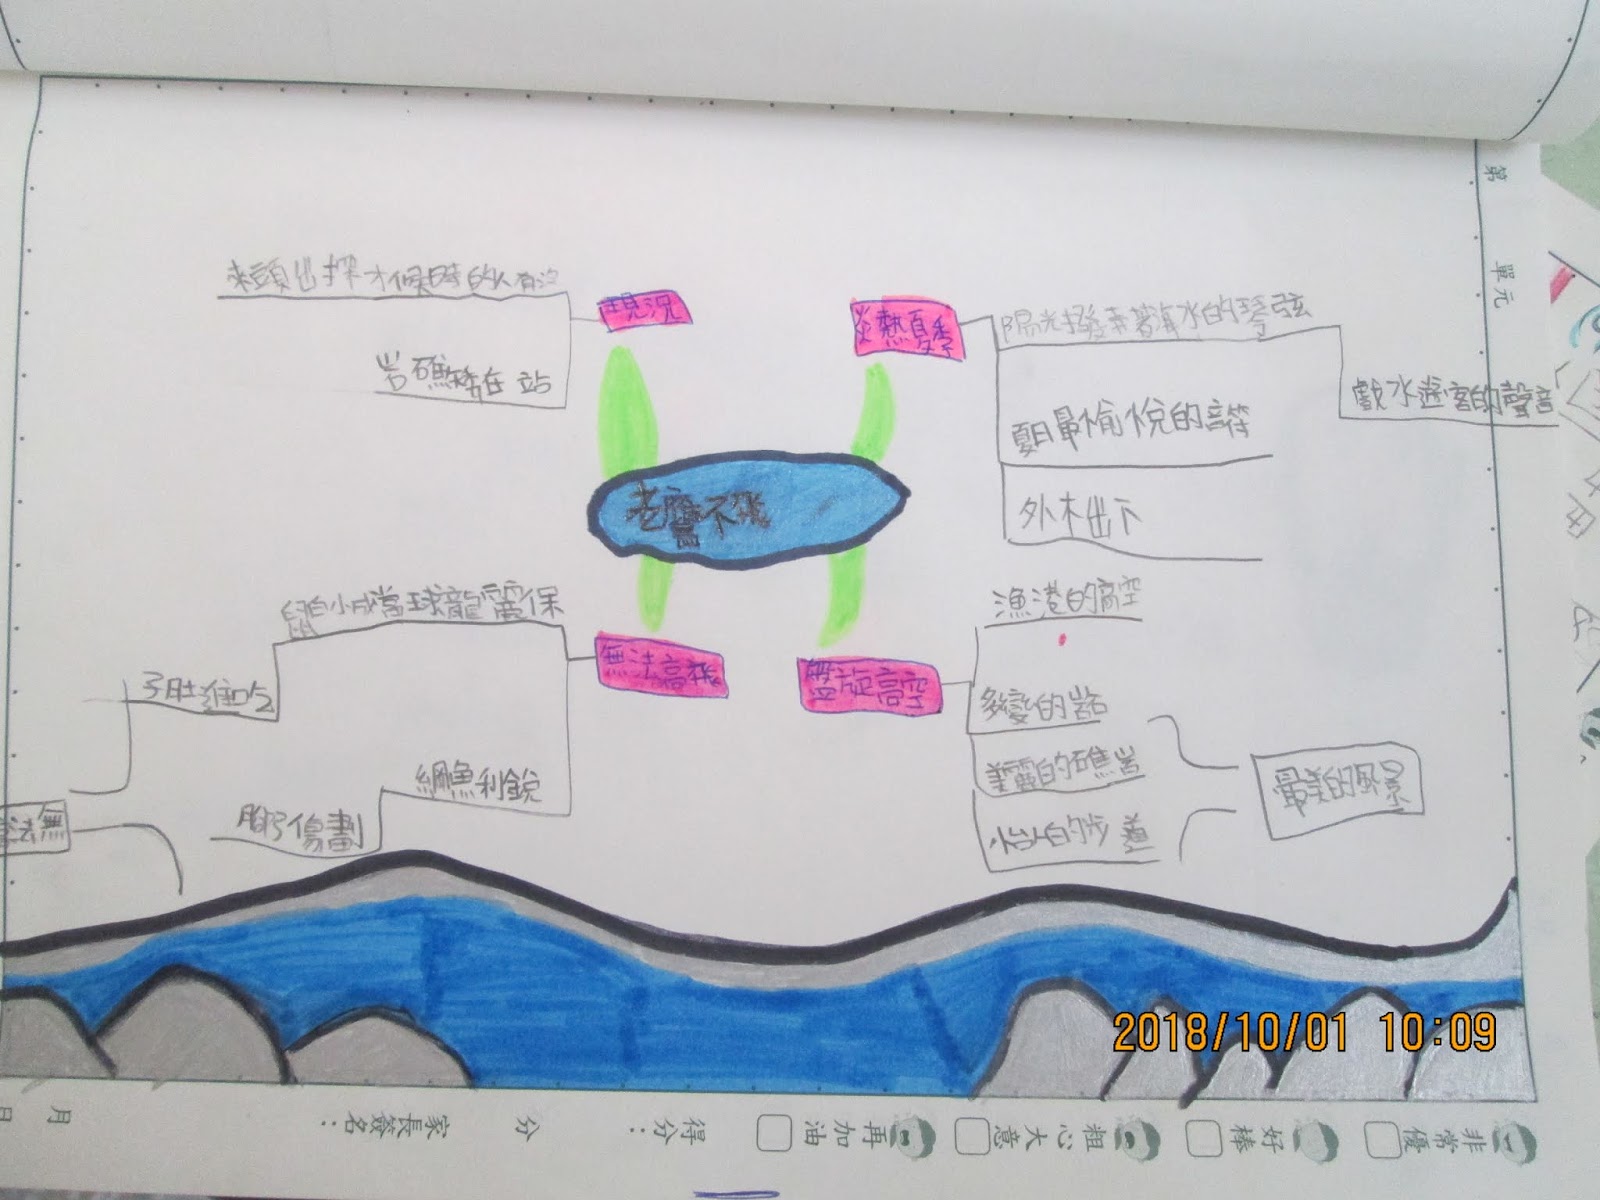 第 單元
現況
沒有人的時候才探出頭來
站在矮礁岩
炎熱夏季
陽光撥弄著海水的琴弦
戲水遊客的聲音
夏日最愉悅的音符
外木出下
老鷹不飛
無法高飛
保麗龍球當成小白鼠
吃進肚子
銳利魚
劃傷
無法
盤旋高空
漁港的高空
多變的岩
美麗的礁岩
怡人的步道
最美的風景
2018/10/01 10:09
非常優
好棒
粗心大意
再加油
得分：
分
家長簽名：
月
日